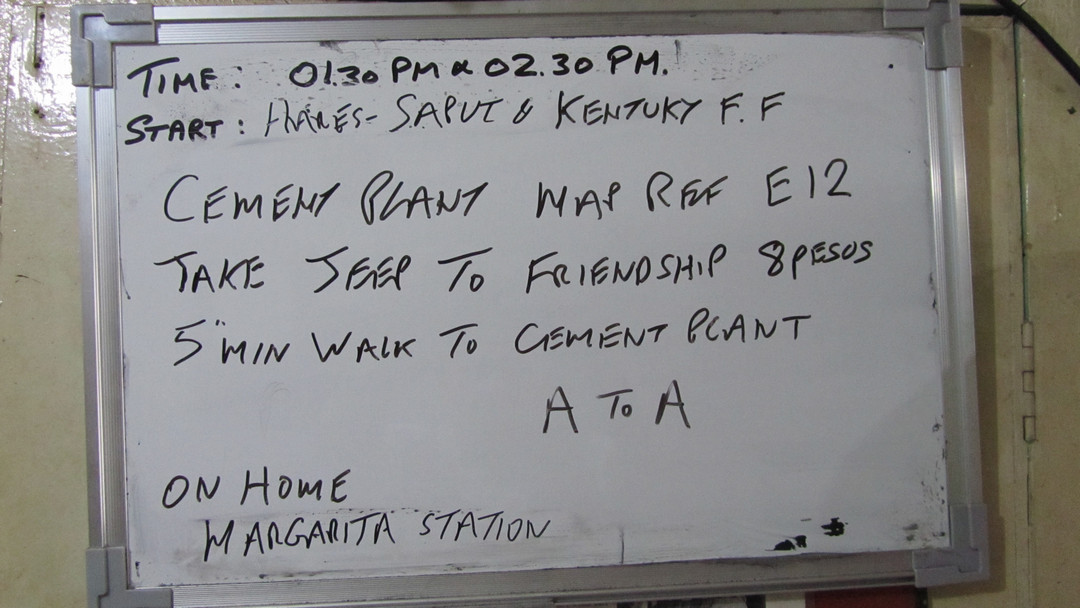 TIME: 01.30 PM & 02.30 PM.
START: HARES - SAPUT & KENTUKY F. F
CEMENT PLANT MAP REF E12
TAKE JEEP TO FRIENDSHIP 8 PESOS
5" MIN WALK TO CEMENT PLANT
A TO A
ON HOME
MARGARITA STATION